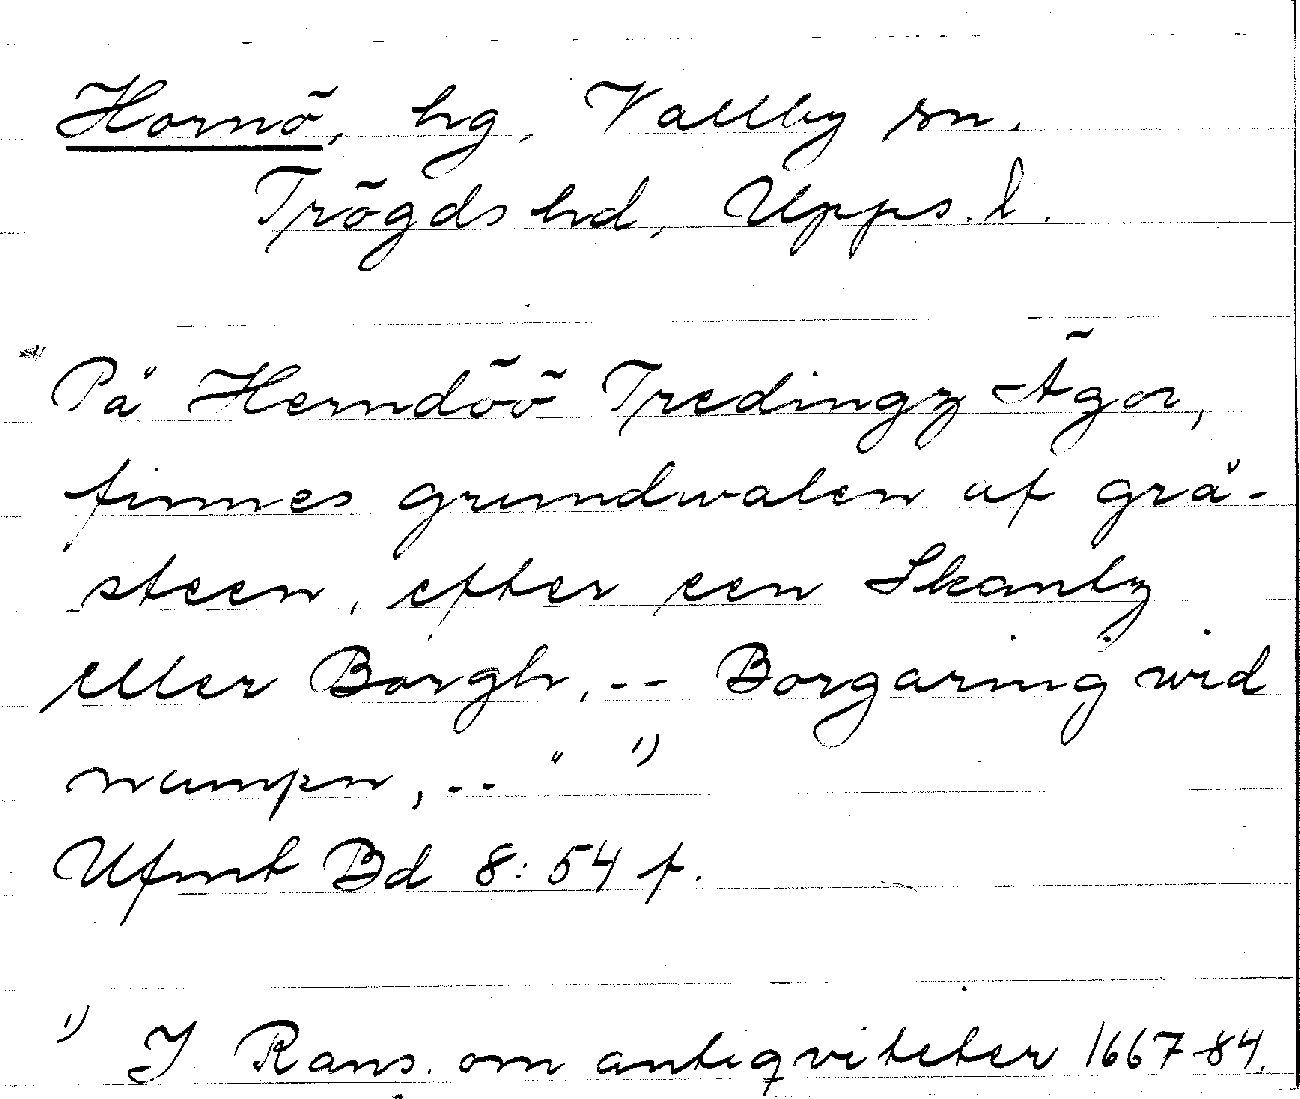 Hornö, hg, Vallby sn.
Trögds hd, Upps. l.
"På Herndöö Tredingz Ägor,
finnes grundwalen af grå-
steen, efter een Skantz
eller Borgh, -- Borgaring wid
nampn, -- " 1)
Ufmt Bd 8:54 f.
1) I Rans. om antiqviteter 1667-84.